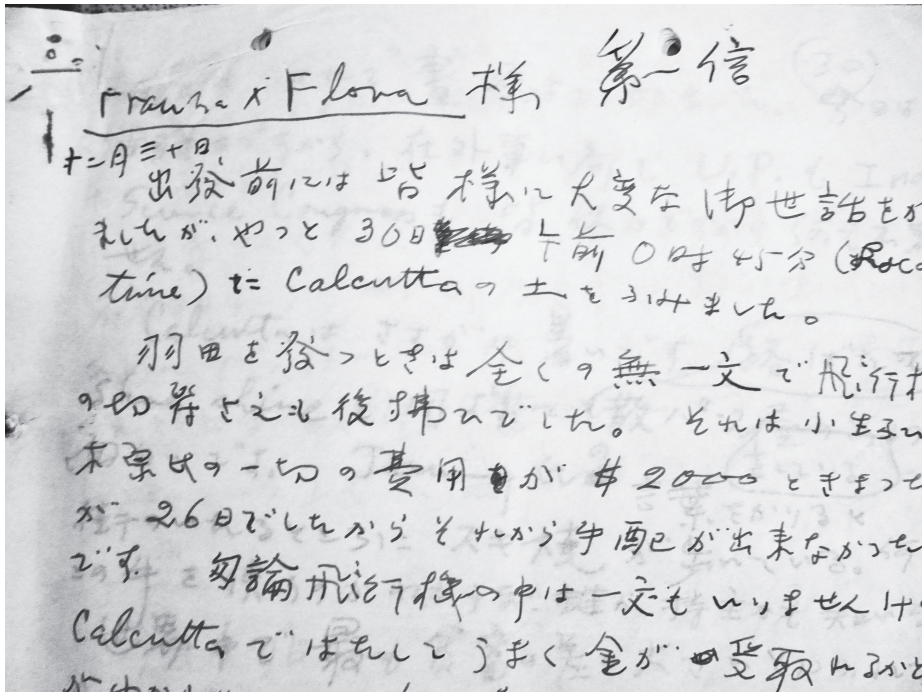 Frauna x Flora 様 第一信
十二月三十日
出発前には皆様に大変な御世話をか
ましたが、やっと30日 午前0時45分(Loca
time)に Calcuttaの土をふみました。
羽田を発つときは全くの無一文で飛行村
の切符さえも後拂ひでした。それは小生
の一切の費用が $2000ときまって
が26日でしたからそれから手配が出来なかった
です。勿論飛行機の中は一文もいりませんけ
Calcuttaではたしてうまく金が受取れるかと